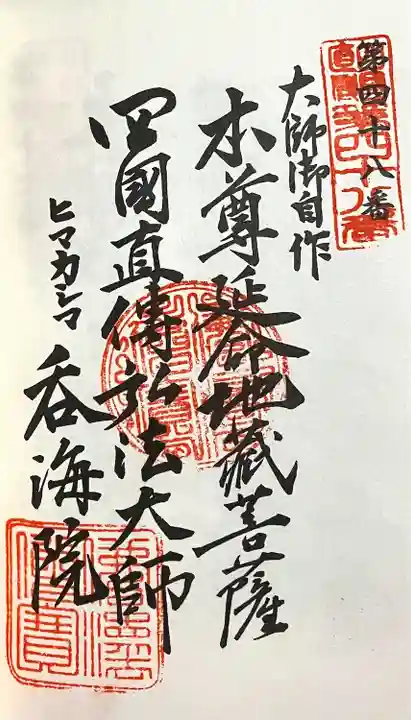 第四十八番
大師御自作
本尊延命地蔵菩薩
四國直傳弘法大師
ヒマカシマ
呑海院